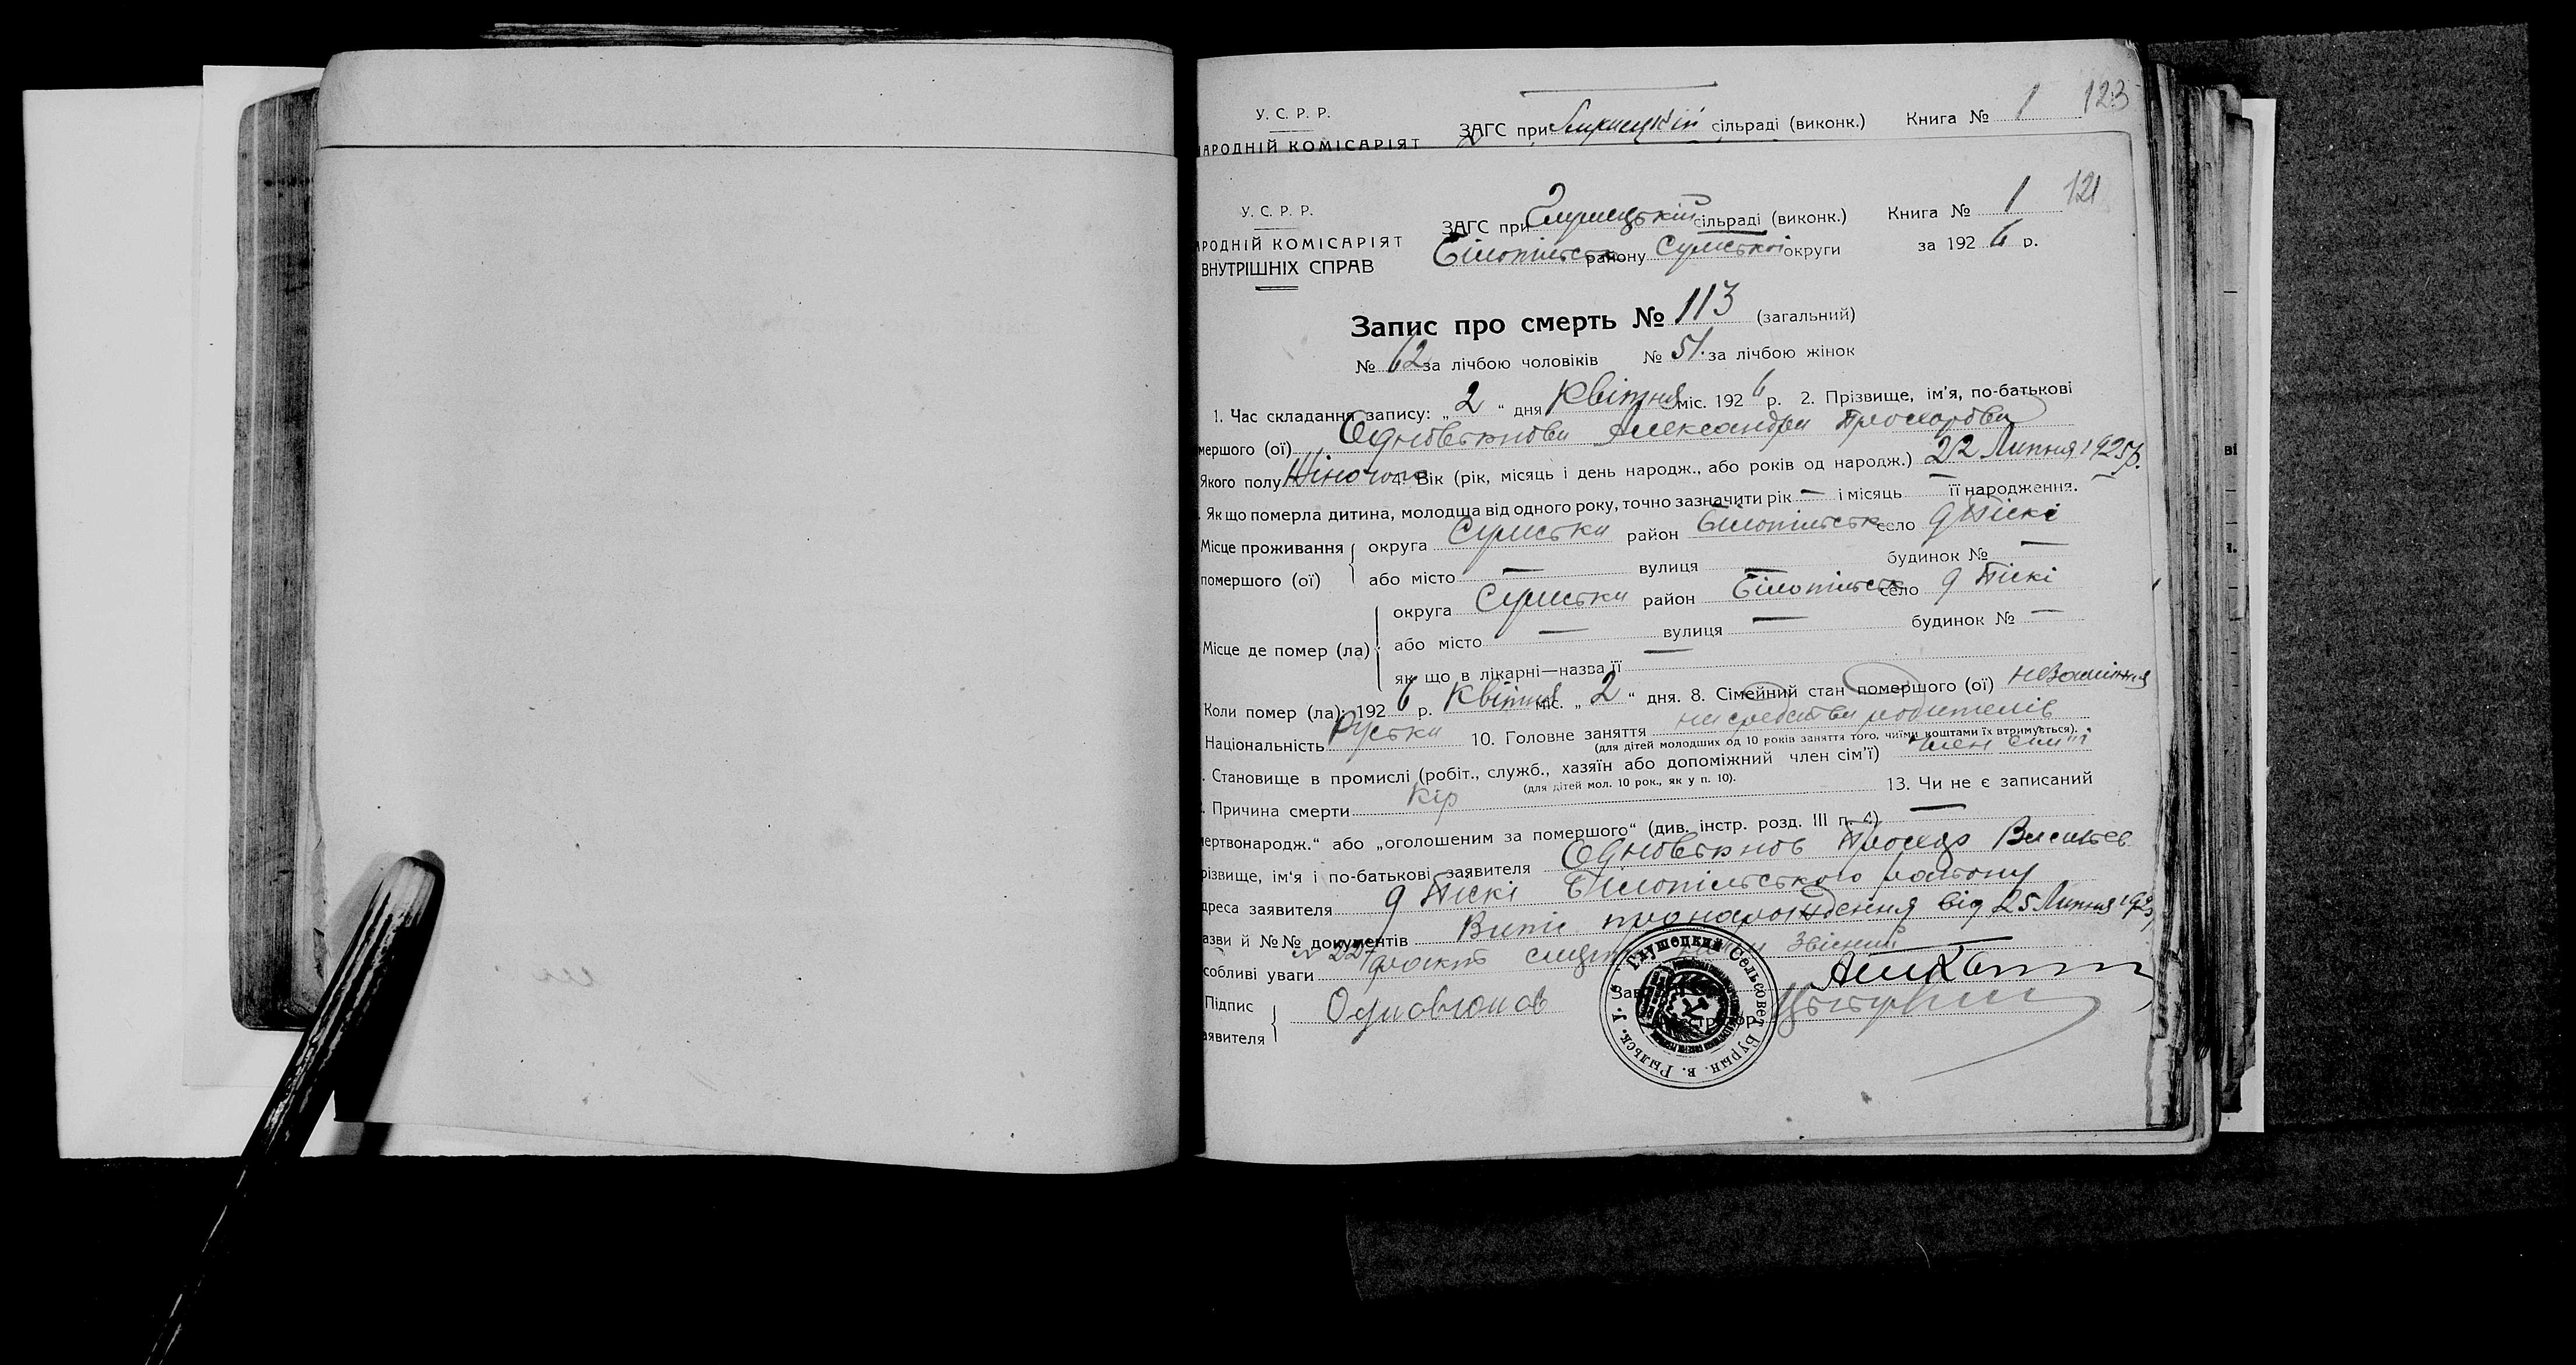 У. С. Р. Р. ЗАГС при сільраді (виконк.) Книга № 1 123
НАРОДНІЙ КОМІСАРІЯТ
У. С. Р. Р. ЗАГС при сільраді (виконк.) Книга № 1 121
АРОДНІЙ КОМІСАРІЯТ Білопільськ району Сумської округи за 1926 р.
ВНУТРІШНІХ СПРАВ
Запис про смерть № 113 (загальний)
№ 62 за лічбою чоловіків № 51. за лічбою жінок
1. Час складання запису: „2“ дня Квітня міс. 1926 р. 2. Прізвище, ім'я, по-батькові
мершого (ої) Александра
Якого полу Жіночого 4. Вік (рік, місяць і день народж., або років од народж.) 22 Липня 1925р.
. Якщо померла дитина, молодша від одного року, точно зазначити рік — і місяць — її народження.
Місце проживання округа Сумська район Білопільськ село д Піскі
помершого (ої) або місто — вулиця — будинок № —
округа Сумська район Білопільськ село д Піскі
Місце де помер (ла) або місто — вулиця — будинок № —
як що в лікарні—назва її —
Коли помер (ла): 1926 р. Квітня міс. „2“ дня. 8. Сімейний стан помершого (ої)
Національність Руська 10. Головне заняття на средства родителів
(для дітей молодших од 10 років заняття того, чиїми коштами їх втримується).
. Становище в промислі (робіт., служб., хазяїн або допоміжний член сім'ї) член сім'ї
(для дітей мол. 10 рок., як у п. 10).
. Причина смерти Кір 13. Чи не є записаний
мертвонародж.“ або „оголошеним за помершого“ (див. інстр. розд. III п. 4) —
різвище, ім'я і по-батькові заявителя
дреса заявителя д Піскі Білопільського району
азви й №№ документів від 25 Липня 1925
№ 227
собливі уваги
Підпис
аявителя
Глушецкий Сельсовет Бурын. в. Рыльск. у.